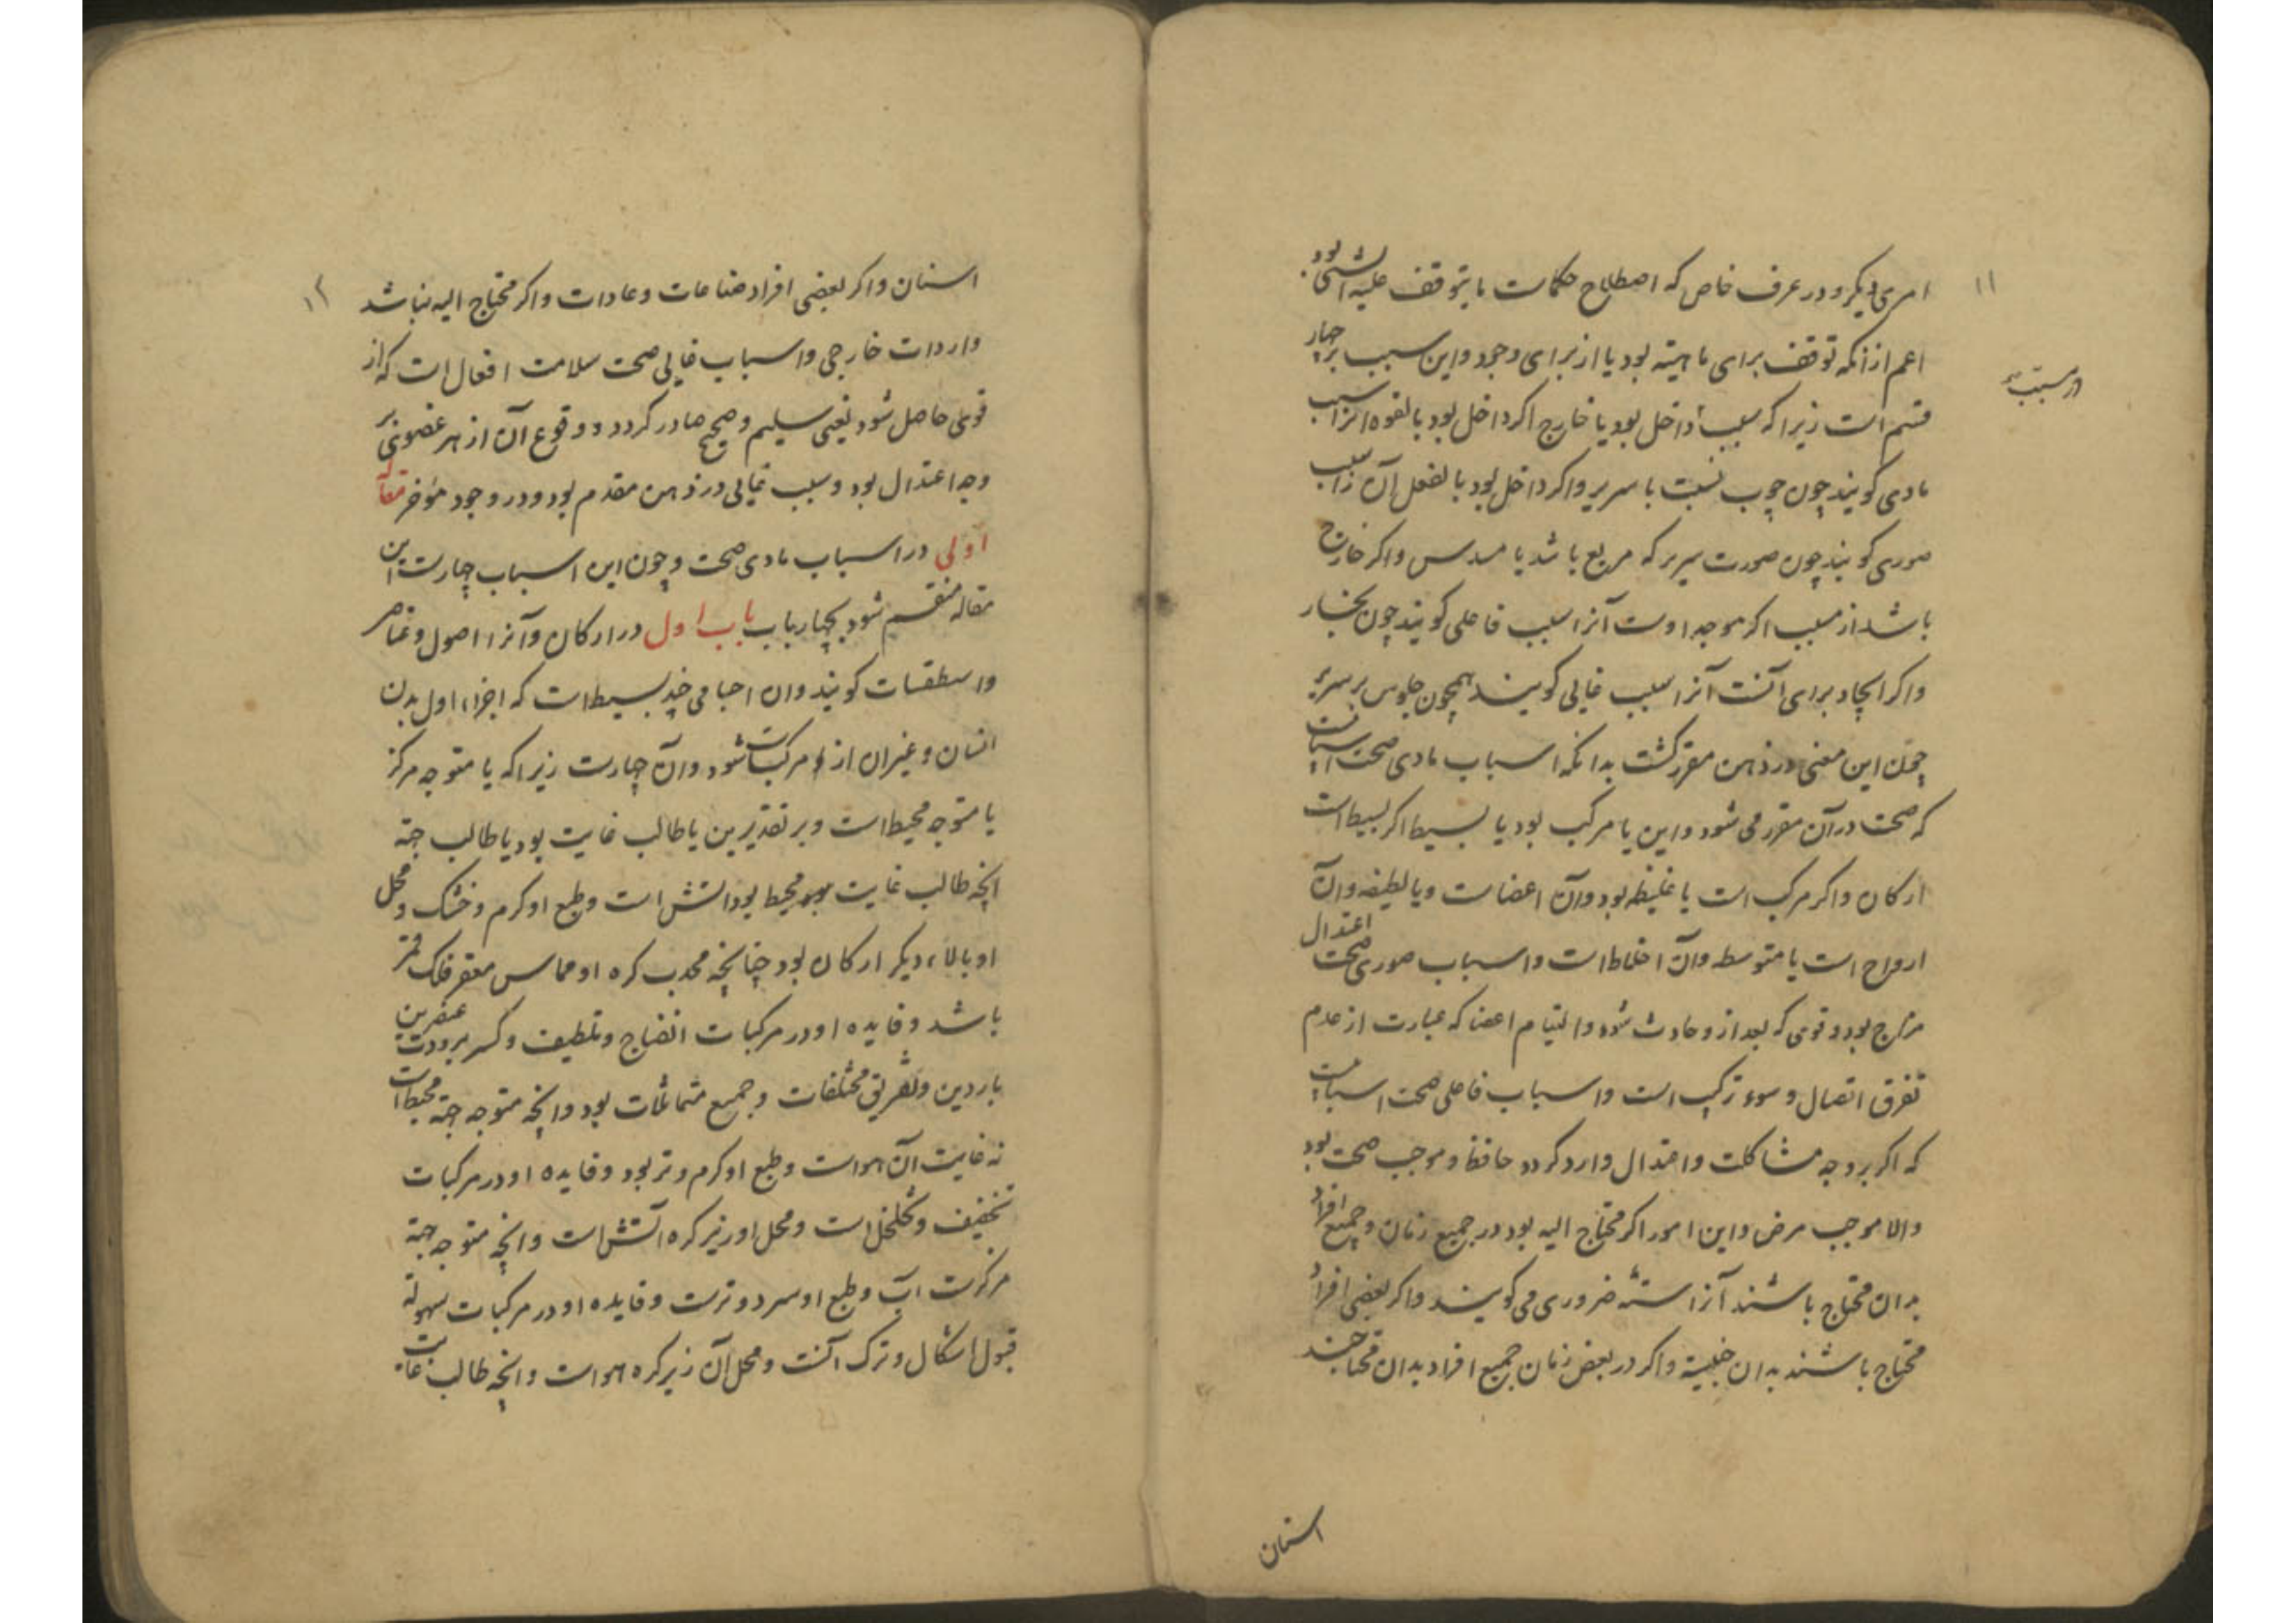 ۱۱
امری دیگر و در عرف خاص که اصطلاح حکمات ما یتوقف علیه الشی بود
اعم از انکه توقف برای ماهیته بود یا از برای وجود و این سبب بر چهار
در سبب
قسم است زیرا که سبب یا داخل بود یا خارج اکر داخل بود بالقوه انرا سبب
مادی کویند چون چوب نسبت با سریر و اکر داخل بود بالفعل آن را سبب
صوری کویند چون صورت سریر که مربع باشد یا مسدس و اکر خارج
باشد از مسبب اکر موجد اوست آنرا سبب فاعلی کویند چون نجار
و اکر ایجاد برای آنست آنرا سبب غایی کویند همچون جلوس بر سریر
چون این معنی در ذهن مقرر کشت بدانکه اسباب مادی صحت اسبابیست
که صحت در آن مقرر می شود و این یا مرکب بود یا بسیط اکر بسیط است
ارکان و اکر مرکب است یا غلیظ بود و آن اعضاست و یا لطیف و آن
ارواح است یا متوسط و آن اخلاط است و اسباب صوری صحت اعتدال
مزاج بود و قوی که بعد از و حادث شود و التیام اعضا که عبارت از عدم
تفرق اتصال و سوء ترکیب است و اسباب فاعلی صحت اسبابیست
که اکر بر وجه مشاکلت و اعتدال وارد کردد حافظ و موجب صحت بود
والا موجب مرض و این امور اکر محتاج الیه بود در جمیع زمان و جمیع افراد
بدان محتاج باشند آنرا سته ضروری می کویند و اکر بعضی افراد
محتاج باشند بدان و اکر در بعض زمان جمیع افراد بدان محتاجند
اسنان
۱۲
اسنان و اکر بعضی افراد صناعات و عادات و اکر محتاج الیه نباشد
واردات خارجی و اسباب غایی صحت سلامت افعال است که از
قوی حاصل شود یعنی سلیم و صحیح صادر کردد و وقوع آن از هر عضوی بر
وجه اعتدال بود و سبب غایی در ذهن مقدم بود و در وجود مؤخر مقاله
اولی در اسباب مادی صحت و چون این اسباب چهارست این
مقاله منقسم شود بچهار باب باب اول در ارکان و آنرا اصول و عناصر
و اسطقسات کویند و ان اجسامی چند بسیط است که اجزاء اول بدن
انسان و غیر ان از مرکبات شود و آن چهارست زیرا که یا متوجه مرکز
یا متوجه محیط است و بر تقدیرین یا طالب غایت بود یا طالب جهة
انچه طالب غایت محیط بود اتش است و طبع او کرم و خشک و محل
او بالاء دیکر ارکان بود چنانچه محدب کره او مماس مقعر فلک قمر
باشد و فایده او در مرکبات انضاج و تلطیف و کسر برودت عنصرین
باردین و تفریق مختلفات و جمیع متماثلات بود و انچه متوجه جهة محیط است
نه غایت آن هواست و طبع او کرم و تر بود و فایده او در مرکبات
تخفیف و تخلخل است و محل او زیر کره آتش است و انچه متوجه جهة
مرکزست آب و طبع او سرد و ترست و فایده او در مرکبات سهولة
قبول اشکال و ترک آنست و محل آن زیر کره هواست و انچه طالب غایت